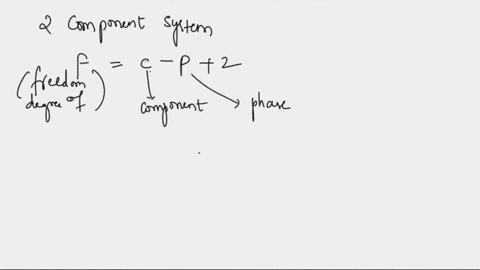 2 Component System
F = C - P + 2
(freedom
degree of)
component
phase